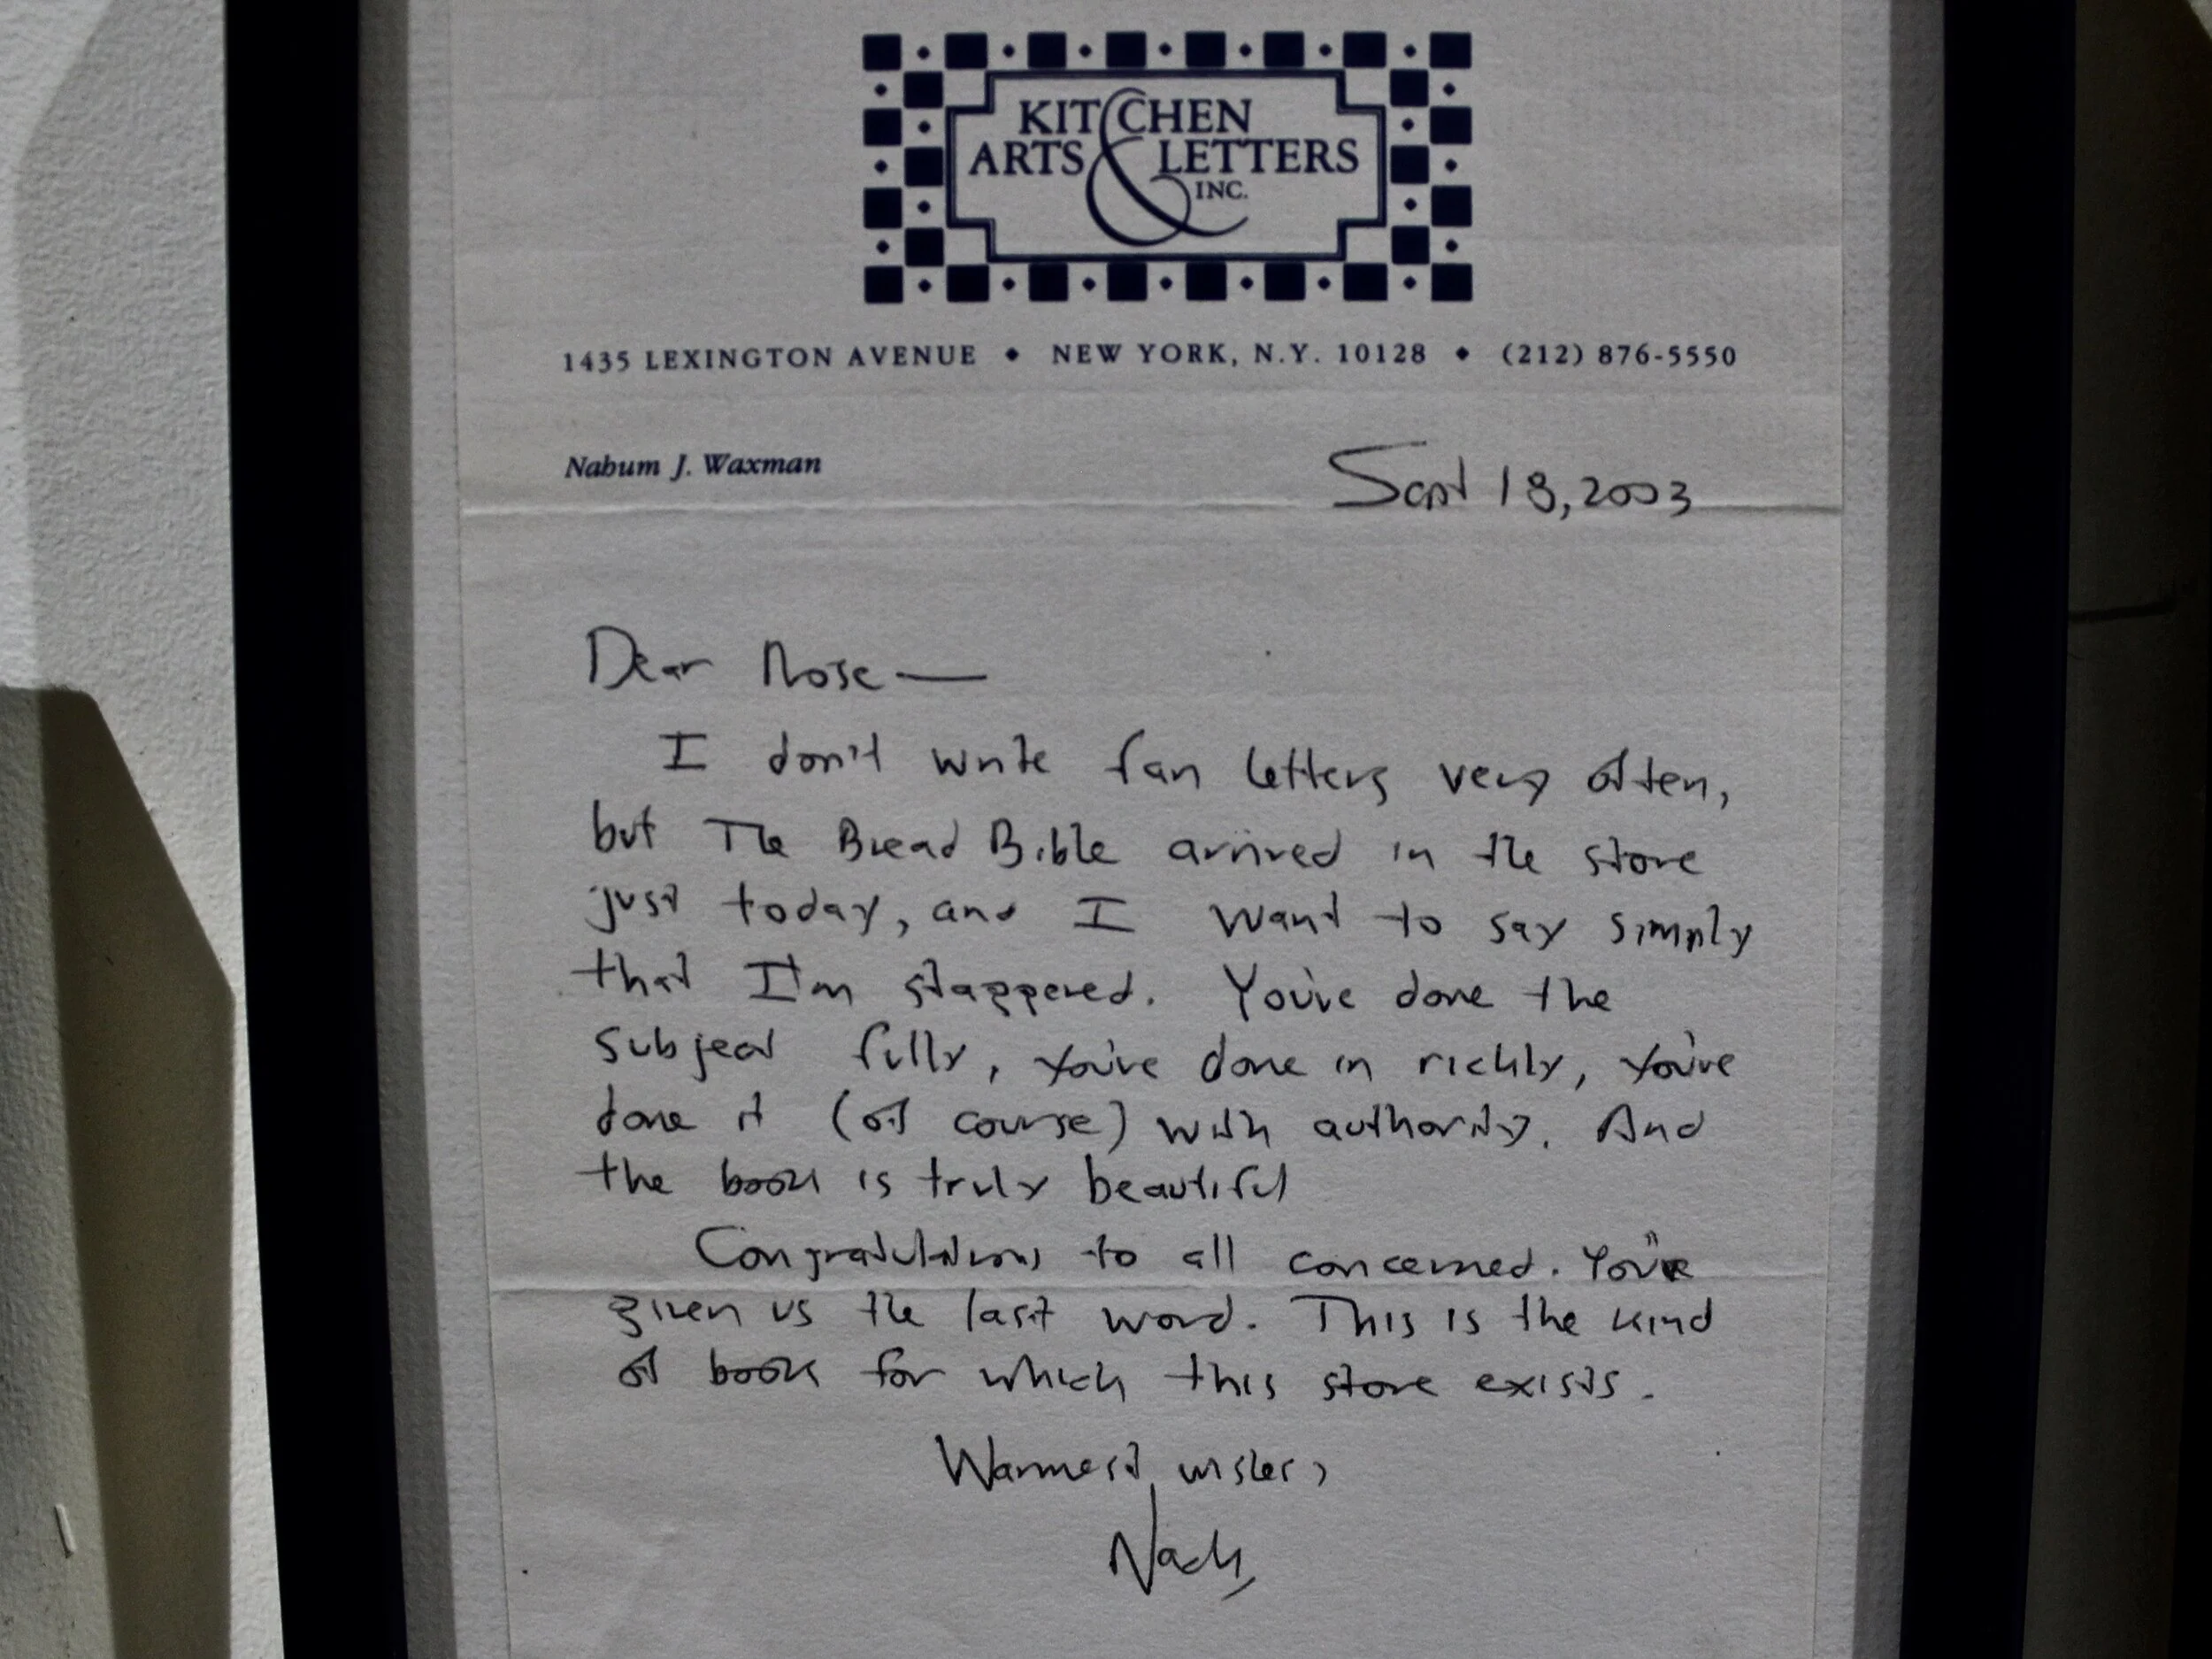 KITCHEN
ARTS & LETTERS
INC.
1435 LEXINGTON AVENUE • NEW YORK, N.Y. 10128 • (212) 876-5550
Nahum J. Waxman
Sept 18, 2003
Dear Rose —
I don't write fan letters very often,
but The Bread Bible arrived in the store
just today, and I want to say simply
that I'm staggered. You've done the
subject fully, you've done in richly, you've
done it (of course) with authority. And
the book is truly beautiful
Congratulations to all concerned. You've
given us the last word. This is the kind
of book for which this store exists.
Warmest wishes,
Nach